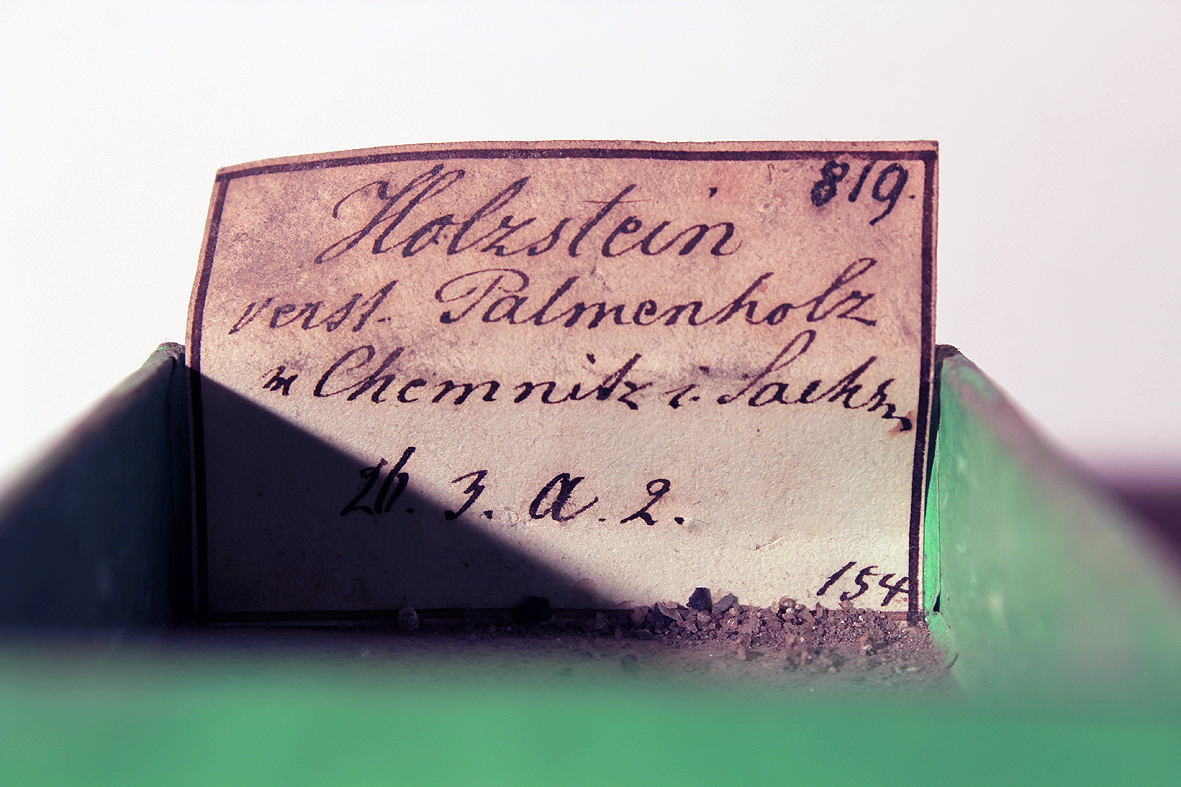 819.
Holzstein
verst. Palmenholz
v Chemnitz i. Sachsn
2b. 3. a. 2.
154